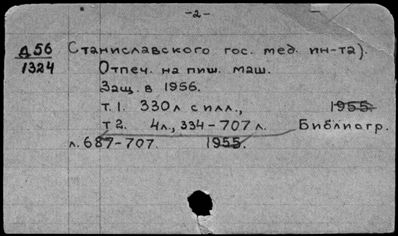 -2-
Д56 Станиславского гос. мед. ин-та).
1324 Отпеч. на пиш. маш.
Защ. в 1956.
т.1. 330л с илл., 1955.
т2. 4л., 334-707 л. Библиогр.
л. 687-707. 1955.